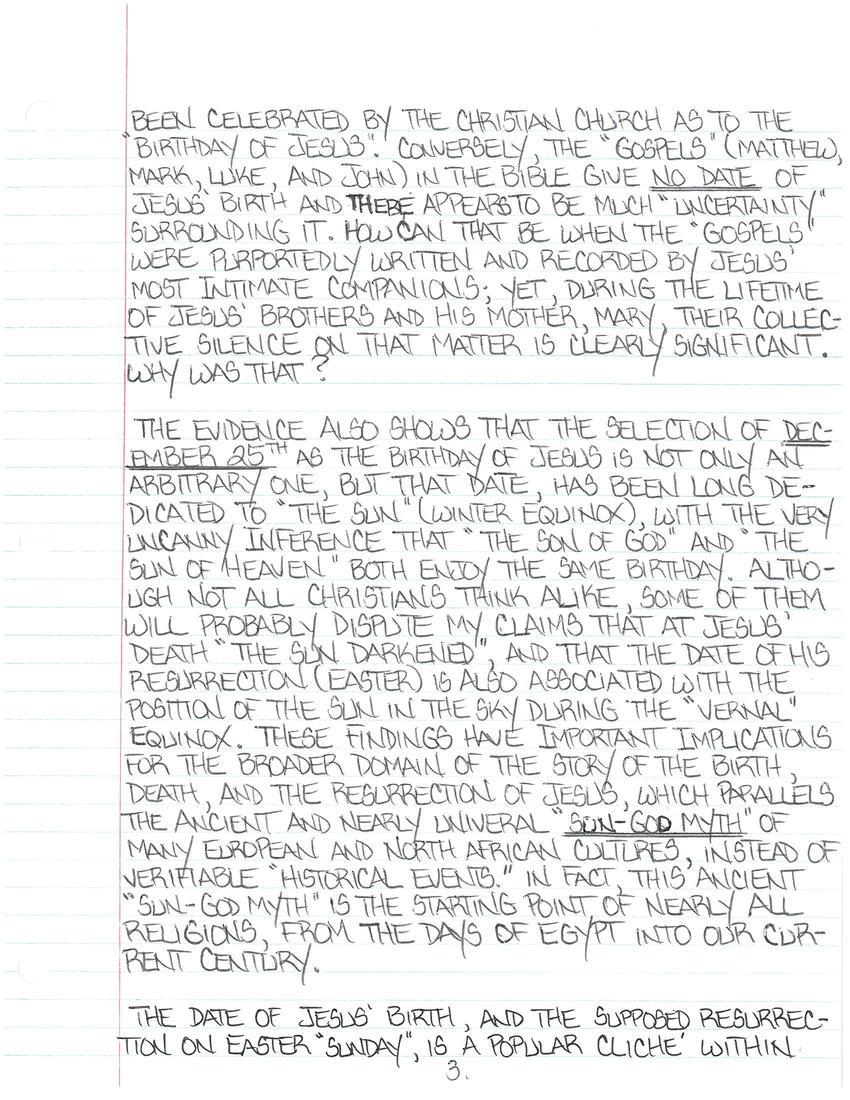 BEEN CELEBRATED BY THE CHRISTIAN CHURCH AS TO THE
"BIRTHDAY OF JESUS". CONVERSELY, THE "GOSPELS" (MATTHEW,
MARK, LUKE, AND JOHN) IN THE BIBLE GIVE NO DATE OF
JESUS' BIRTH AND THERE APPEARS TO BE MUCH "UNCERTAINTY"
SURROUNDING IT. HOW CAN THAT BE WHEN THE "GOSPELS"
WERE PURPORTEDLY WRITTEN AND RECORDED BY JESUS'
MOST INTIMATE COMPANIONS; YET, DURING THE LIFETIME
OF JESUS' BROTHERS AND HIS MOTHER, MARY, THEIR COLLEC-
TIVE SILENCE ON THAT MATTER IS CLEARLY SIGNIFICANT.
WHY WAS THAT?
THE EVIDENCE ALSO SHOWS THAT THE SELECTION OF DEC-
EMBER 25TH AS THE BIRTHDAY OF JESUS IS NOT ONLY AN
ARBITRARY ONE, BUT THAT DATE, HAS BEEN LONG DE-
DICATED TO "THE SUN" (WINTER EQUINOX), WITH THE VERY
UNCANNY INFERENCE THAT "THE SON OF GOD" AND "THE
SUN OF HEAVEN" BOTH ENJOY THE SAME BIRTHDAY. ALTHO-
UGH NOT ALL CHRISTIANS THINK ALIKE, SOME OF THEM
WILL PROBABLY DISPUTE MY CLAIMS THAT AT JESUS'
DEATH "THE SUN DARKENED", AND THAT THE DATE OF HIS
RESURRECTION (EASTER) IS ALSO ASSOCIATED WITH THE
POSITION OF THE SUN IN THE SKY DURING THE "VERNAL"
EQUINOX. THESE FINDINGS HAVE IMPORTANT IMPLICATIONS
FOR THE BROADER DOMAIN OF THE STORY OF THE BIRTH,
DEATH, AND THE RESURRECTION OF JESUS, WHICH PARALLELS
THE ANCIENT AND NEARLY UNIVERAL "SUN-GOD MYTH" OF
MANY EUROPEAN AND NORTH AFRICAN CULTURES, INSTEAD OF
VERIFIABLE "HISTORICAL EVENTS." IN FACT, THIS ANCIENT
"SUN-GOD MYTH" IS THE STARTING POINT OF NEARLY ALL
RELIGIONS, FROM THE DAYS OF EGYPT INTO OUR CUR-
RENT CENTURY.
THE DATE OF JESUS' BIRTH, AND THE SUPPOSED RESURREC-
TION ON EASTER "SUNDAY", IS A POPULAR CLICHE' WITHIN
3.